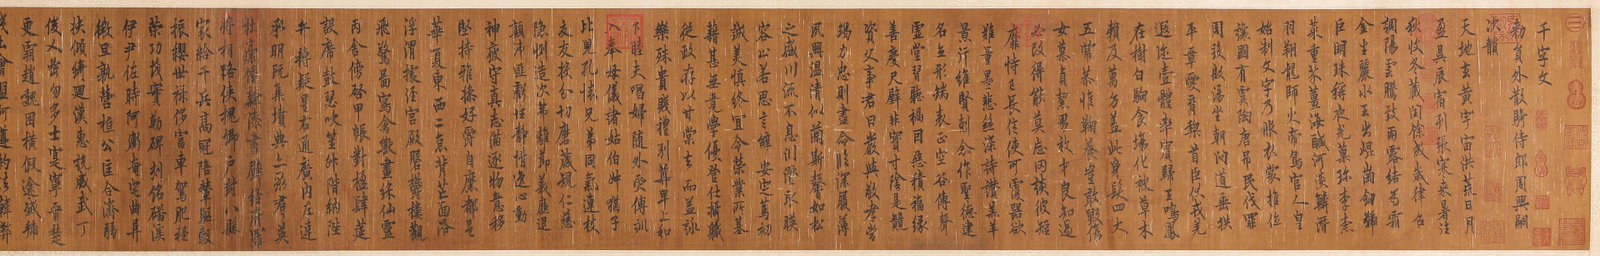 千字文
勅員外散騎侍郎周興嗣
次韻
天地玄黃宇宙洪荒日月
盈昃辰宿列張寒來暑往
秋收冬藏閏餘成歲律呂
調陽雲騰致雨露結為霜
金生麗水玉出崑崗劒號
巨闕珠稱夜光菓珎李柰
菜重芥薑海醎河淡鱗潛
羽翔龍師火帝鳥官人皇
始制文字乃服衣裳推位
讓國有虞陶唐弔民伐罪
周發殷湯坐朝問道垂拱
平章愛育黎首臣伏戎羌
遐迩壹體率賓歸王鳴鳳
在樹白駒食場化被草木
賴及萬方蓋此身髮四大
五常恭惟鞠養豈敢毀傷
女慕貞絜男效才良知過
必改得能莫忘罔談彼短
靡恃己長信使可覆器欲
難量墨悲絲染詩讚羔羊
景行維賢剋念作聖德建
名立形端表正空谷傳聲
虛堂習聽禍因惡積福緣
善慶尺璧非寶寸陰是競
資父事君曰嚴與敬孝當
竭力忠則盡命臨深履薄
夙興溫凊似蘭斯馨如松
之盛川流不息淵澄取暎
容止若思言辭安定篤初
誠美慎終宜令榮業所基
藉甚無竟學優登仕攝職
從政存以甘棠去而益詠
樂殊貴賤禮別尊卑上和
下睦夫唱婦隨外受傅訓
入奉母儀諸姑伯叔猶子
比兒孔懷兄弟同氣連枝
交友投分切磨箴規仁慈
隱惻造次弗離節義廉退
顛沛匪虧性靜情逸心動
神疲守真志滿逐物意移
堅持雅操好爵自縻都邑
華夏東西二京背芒面洛
浮渭據涇宮殿盤鬱樓觀
飛驚圖寫禽獸畫綵仙靈
丙舍傍啓甲帳對楹肆筵
設席鼓瑟吹笙升階納陛
弁轉疑星右通廣內左達
承明既集墳典亦聚群英
杜稾鍾隸漆書壁經府羅
將相路俠槐卿戶封八縣
家給千兵高冠陪輦驅轂
振纓世祿侈富車駕肥輕
策功茂實勒碑刻銘磻溪
伊尹佐時阿衡奄宅曲阜
微旦孰營桓公匡合濟弱
扶傾綺迴漢惠說感武丁
俊乂密勿多士寔寧晉楚
更霸趙魏困橫假途滅虢
踐土會盟何遵約法韓弊